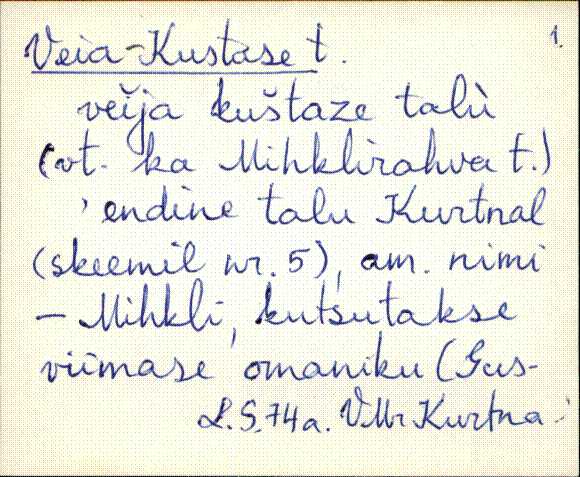 1.
Veia-Kustase t.
veĭja kuštaze talù
(vt. ka Mihklirahva t.)
, endine talu Kurtnal
(skeemil nr. 5), am. nimi
- Mihkli, kutsutakse
viimase omaniku (Gus-
L.S. 74 a. VMr Kurtna